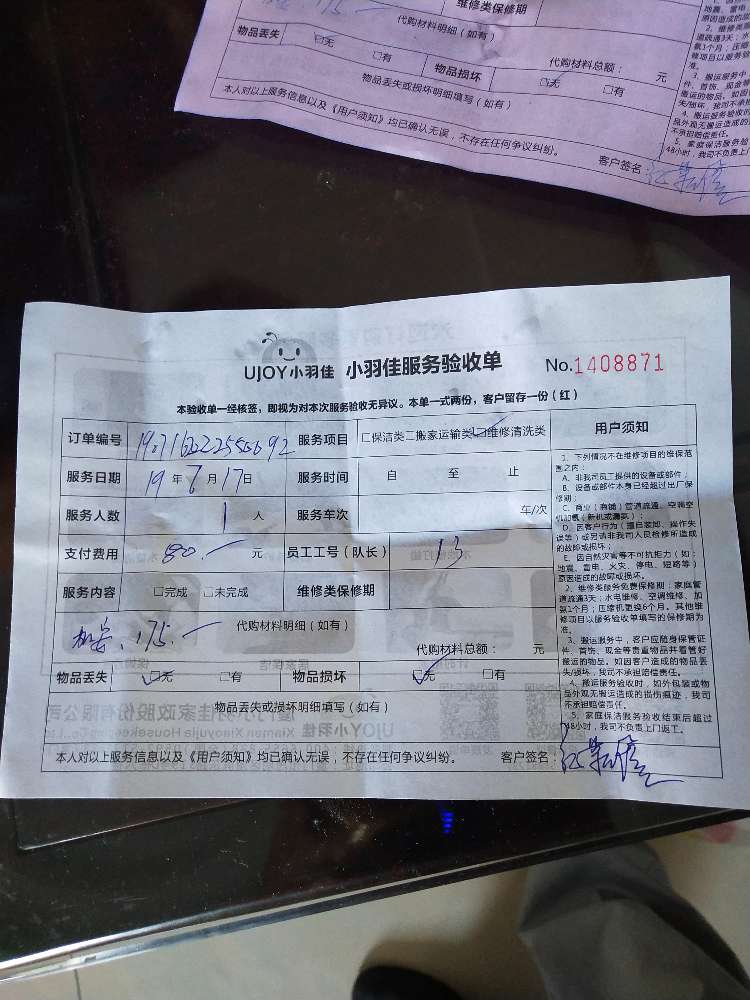 维修类保修期
175.一
代购材料明细（如有）
物品丢失 ☑无 □有 物品损坏 ☑无 □有
代购材料总额： 元
物品丢失或损坏明细填写（如有）
本人对以上服务信息以及《用户须知》均已确认无误，不存在任何争议纠纷。
客户签名：
UJOY小羽佳 小羽佳服务验收单 No.1408871
本验收单一经核签，即视为对本次服务验收无异议。本单一式两份，客户留存一份（红）
订单编号 服务项目 □保洁类□搬家运输类☑维修清洗类
服务日期 19年7月17日 服务时间 自 至 止
服务人数 1人 服务车次 车/次
支付费用 80.一元 员工工号（队长） 13
服务内容 □完成 □未完成 维修类保修期
175.一 代购材料明细（如有）
代购材料总额： 元
物品丢失 ☑无 □有 物品损坏 ☑无 □有
物品丢失或损坏明细填写（如有）
本人对以上服务信息以及《用户须知》均已确认无误，不存在任何争议纠纷。 客户签名：
用户须知
1、下列情况不在维修项目的维保范
围之内：
A、非我司员工提供的设备或部件；
B、设备或部件本身已经超过出厂保
修期；
C、商业（商铺）管道疏通、空调空
机加氨（新机或漏氨）；
D、因客户行为（擅自装卸、操作失
误等）或另请非我司人员检修所造成
的故障或损坏；
E、因自然灾害等不可抗拒力（如：
地震、雷电、火灾、停电、短路等）
原因造成的故障或损坏。
2、维修类服务免费保修期：家庭管
道疏通3天；水电维修、空调维修、加
氨1个月；压缩机更换6个月。其他维
修项目以服务验收单填写的保修期为
准。
3、搬运服务中，客户应随身保管证
件、首饰、现金等贵重物品并看管好
搬运的物品。如因客户造成的物品丢
失/损坏，我司不承担赔偿责任。
4、搬运服务验收时，如外包装或物
品外观无搬运造成的损伤痕迹，我司
不承担赔偿责任。
5、家庭保洁服务验收结束后超过
48小时，我司不负责上门返工。